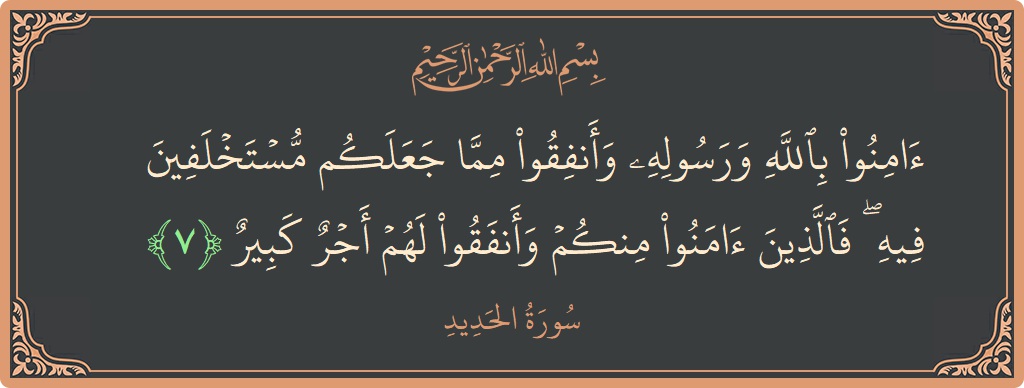 بِسْمِ اللهِ الرَّحْمٰنِ الرَّحِيْمِ
ءَامِنُوا۟ بِٱللَّهِ وَرَسُولِهِۦ وَأَنفِقُوا۟ مِمَّا جَعَلَكُم مُّسْتَخْلَفِينَ
فِيهِ ۖ فَٱلَّذِينَ ءَامَنُوا۟ مِنكُمْ وَأَنفَقُوا۟ لَهُمْ أَجْرٌ كَبِيرٌ ﴿٧﴾
سُورَةُ الحَدِيدِ